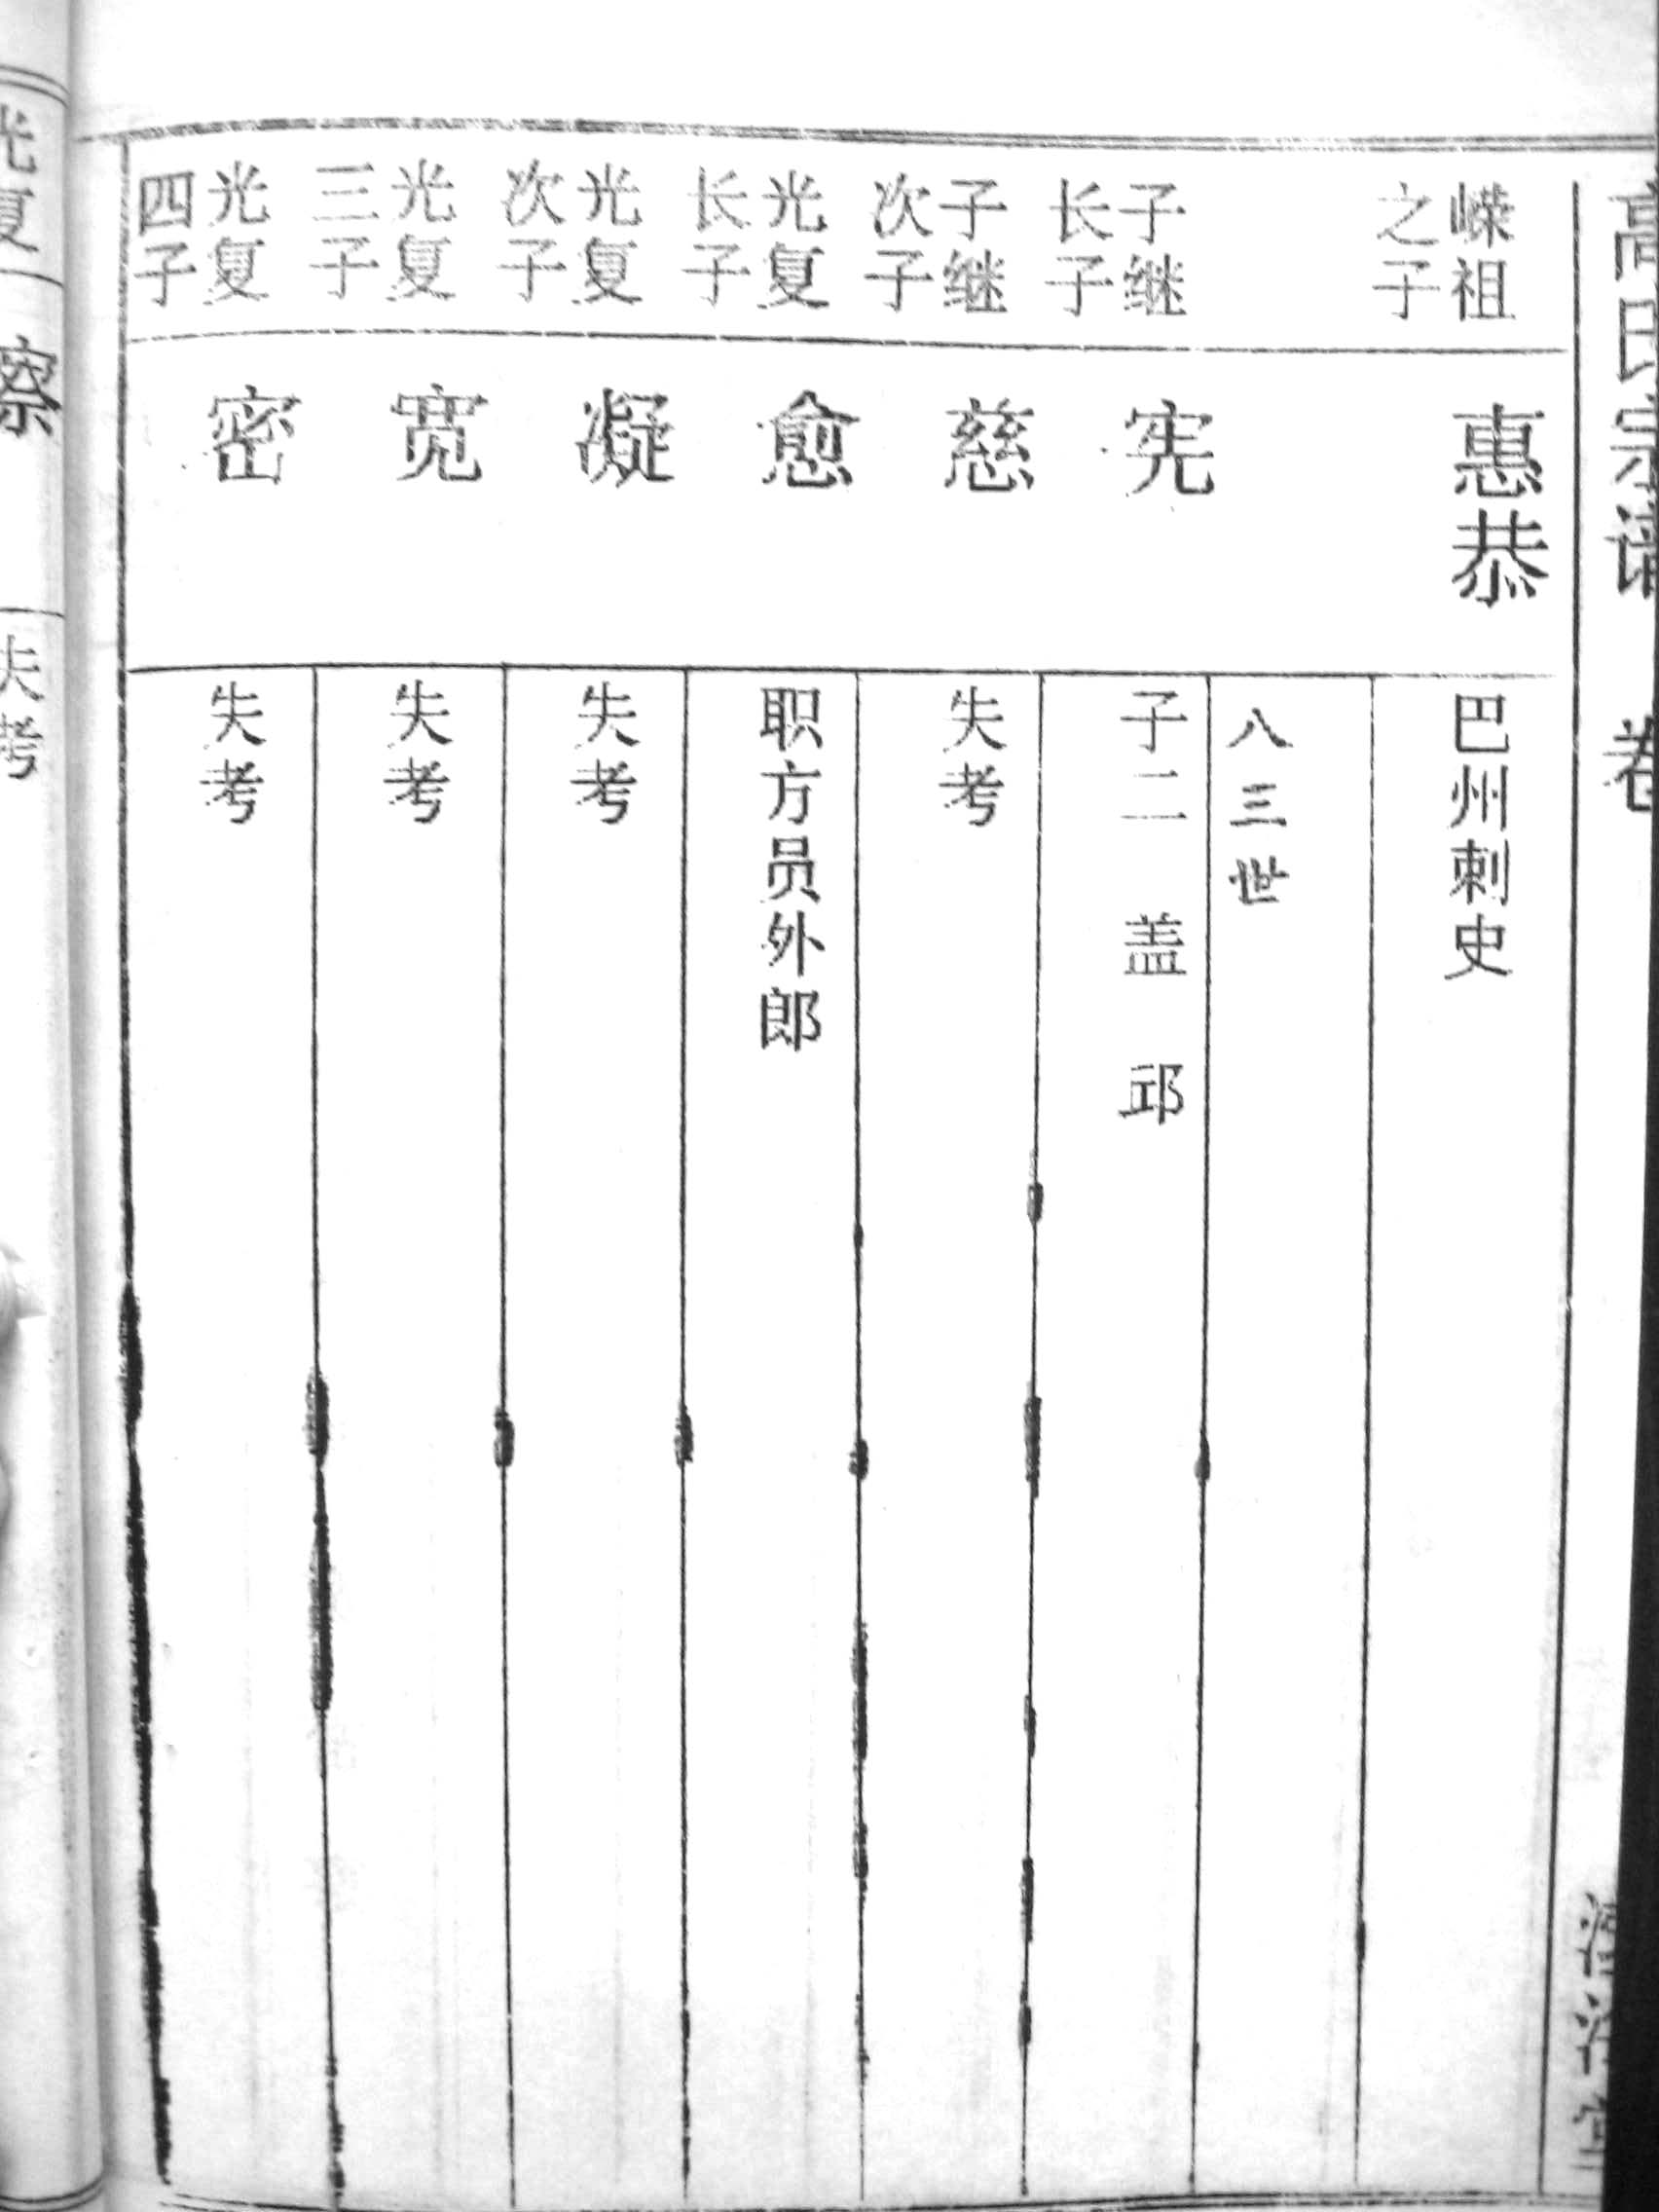 高氏宗谱 卷
嵘祖
之子
惠恭
巴州刺史
八三世
子继
长子
宪
子二 盖 邱
子继
次子
慈
失考
光复
长子
愈
职方员外郎
光复
次子
凝
失考
光复
三子
宽
失考
光复
四子
密
失考
光复
察
失考